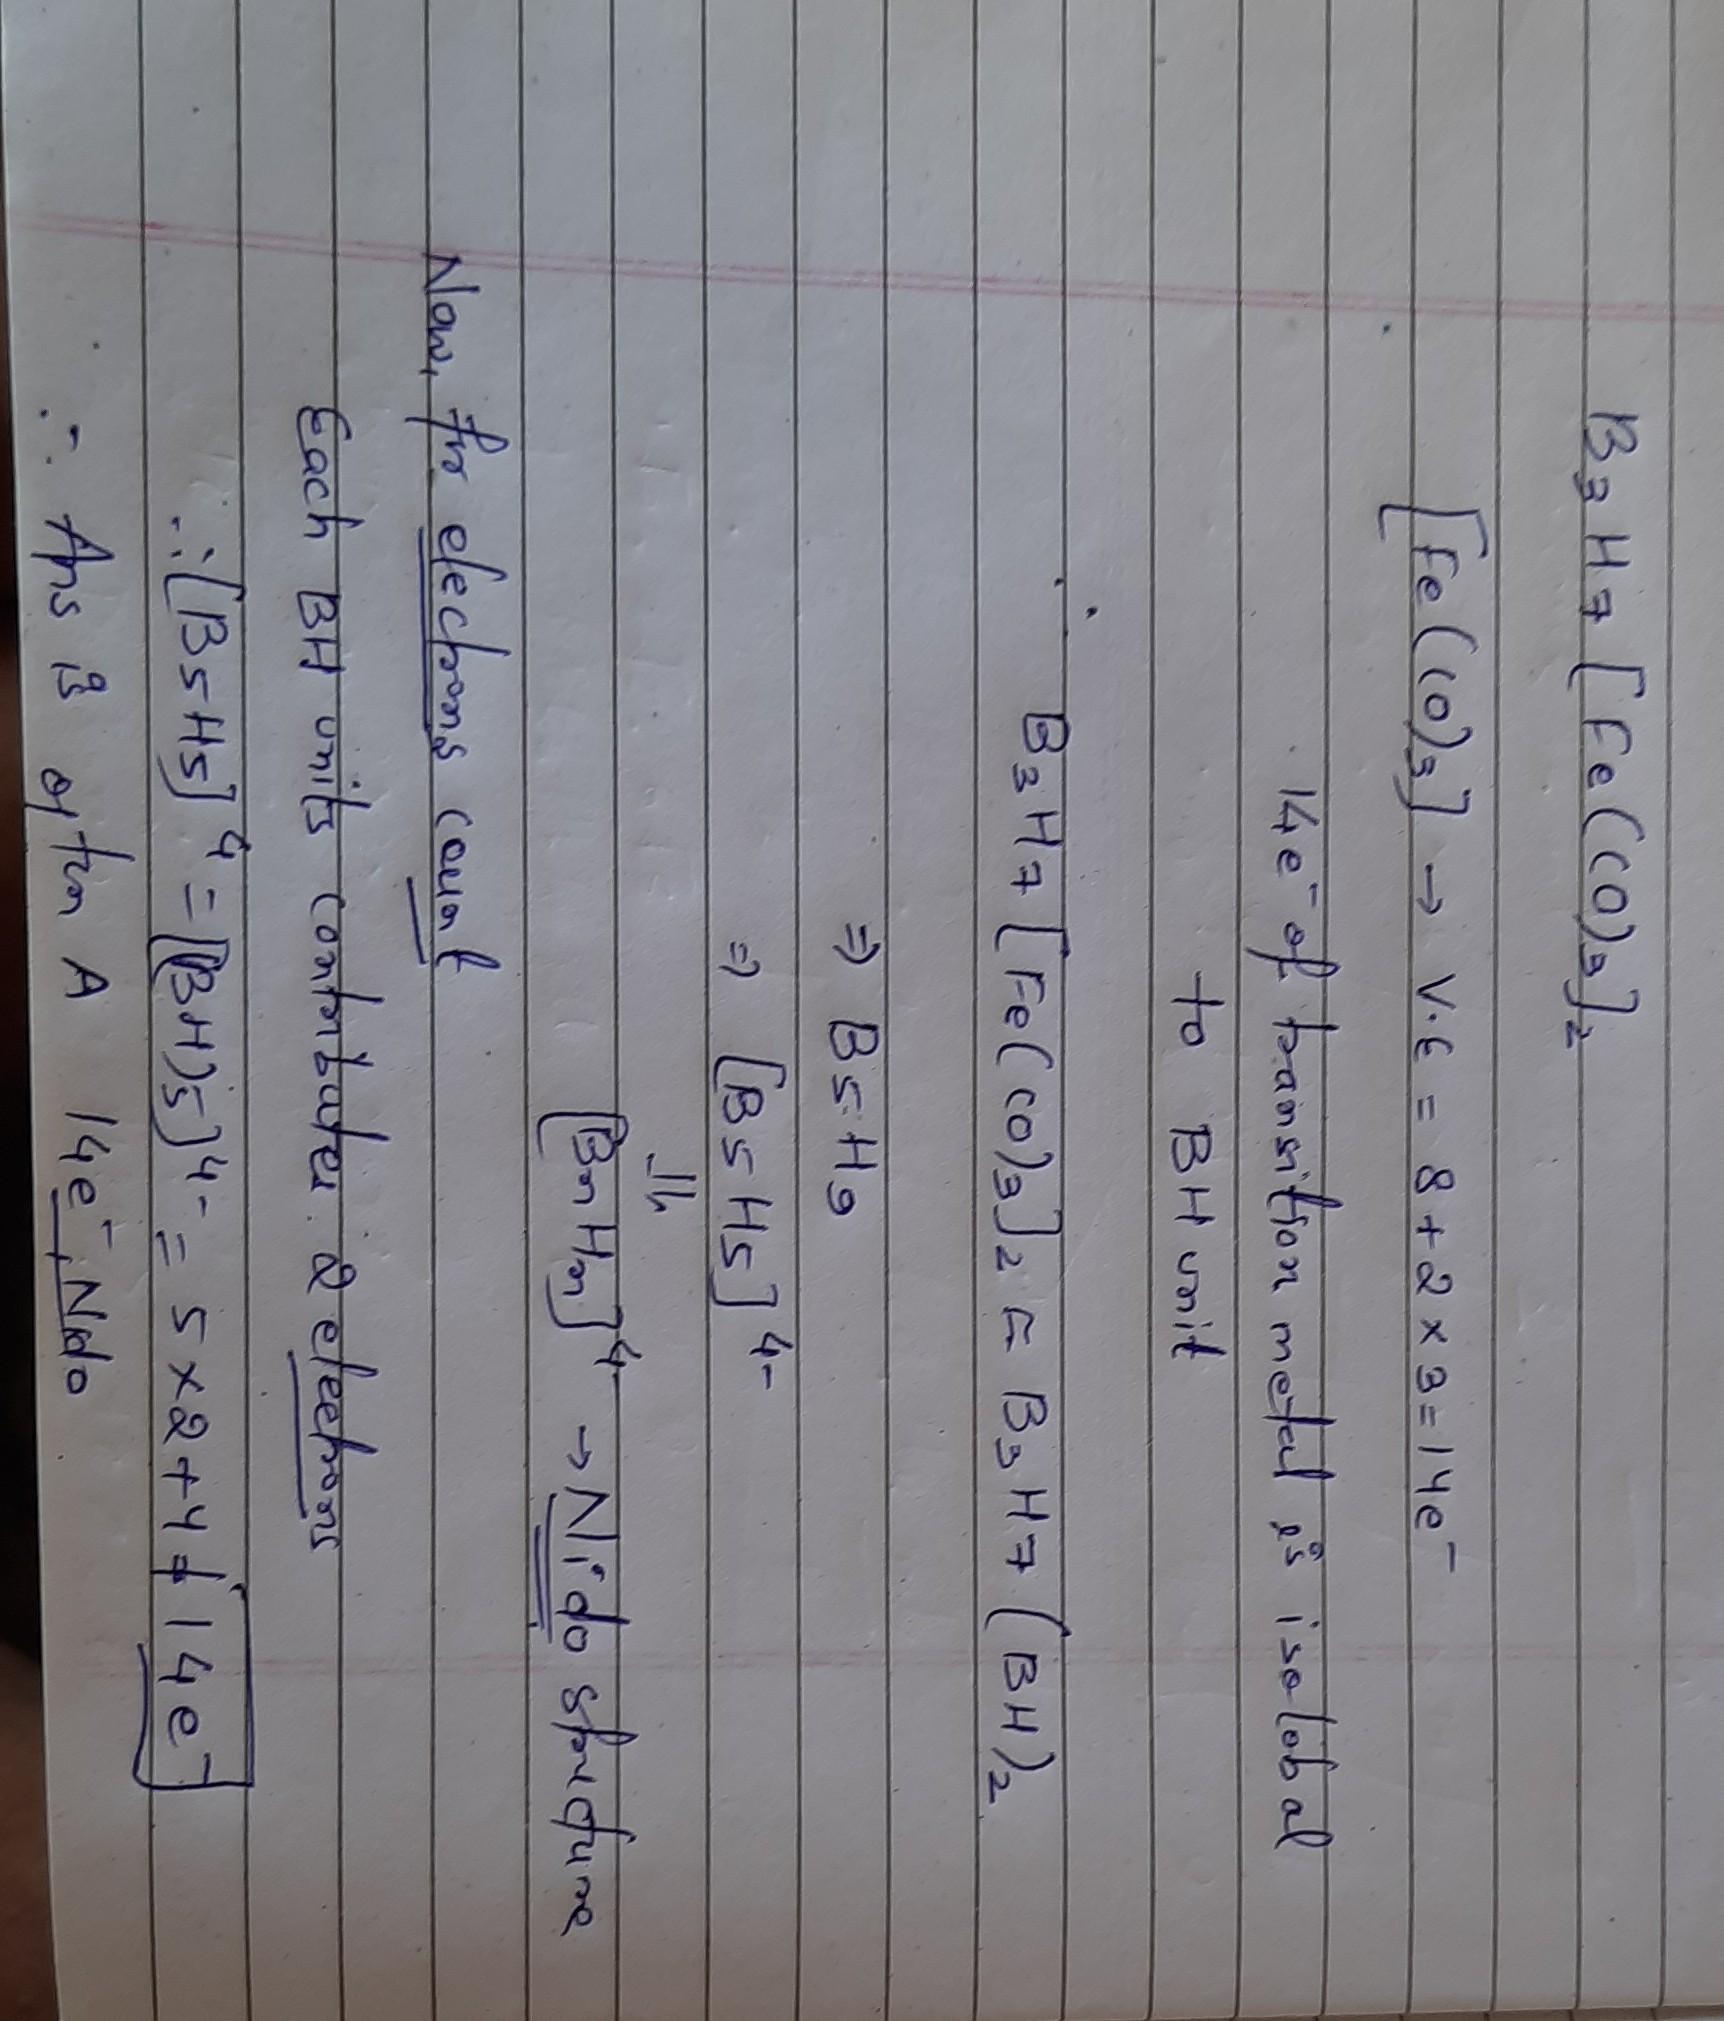 B3H7[Fe(CO)3]2
[Fe(CO)3] → V.E = 8+2×3=14e⁻
14e⁻ of transition metal is isolobal
to BH unit
B3H7[Fe(CO)3]2 = B3H7(BH)2
⇒ B5H9
⇒ [B5H5]⁴⁻
[BnHn]⁴⁻ → Nido structure
Now, for electrons count
Each BH units contributes 2 electrons
∴ [B5H5]⁴ = [(BH)5]⁴⁻ = 5×2+4 = 14e⁻
∴ Ans is option A 14e⁻, Nido